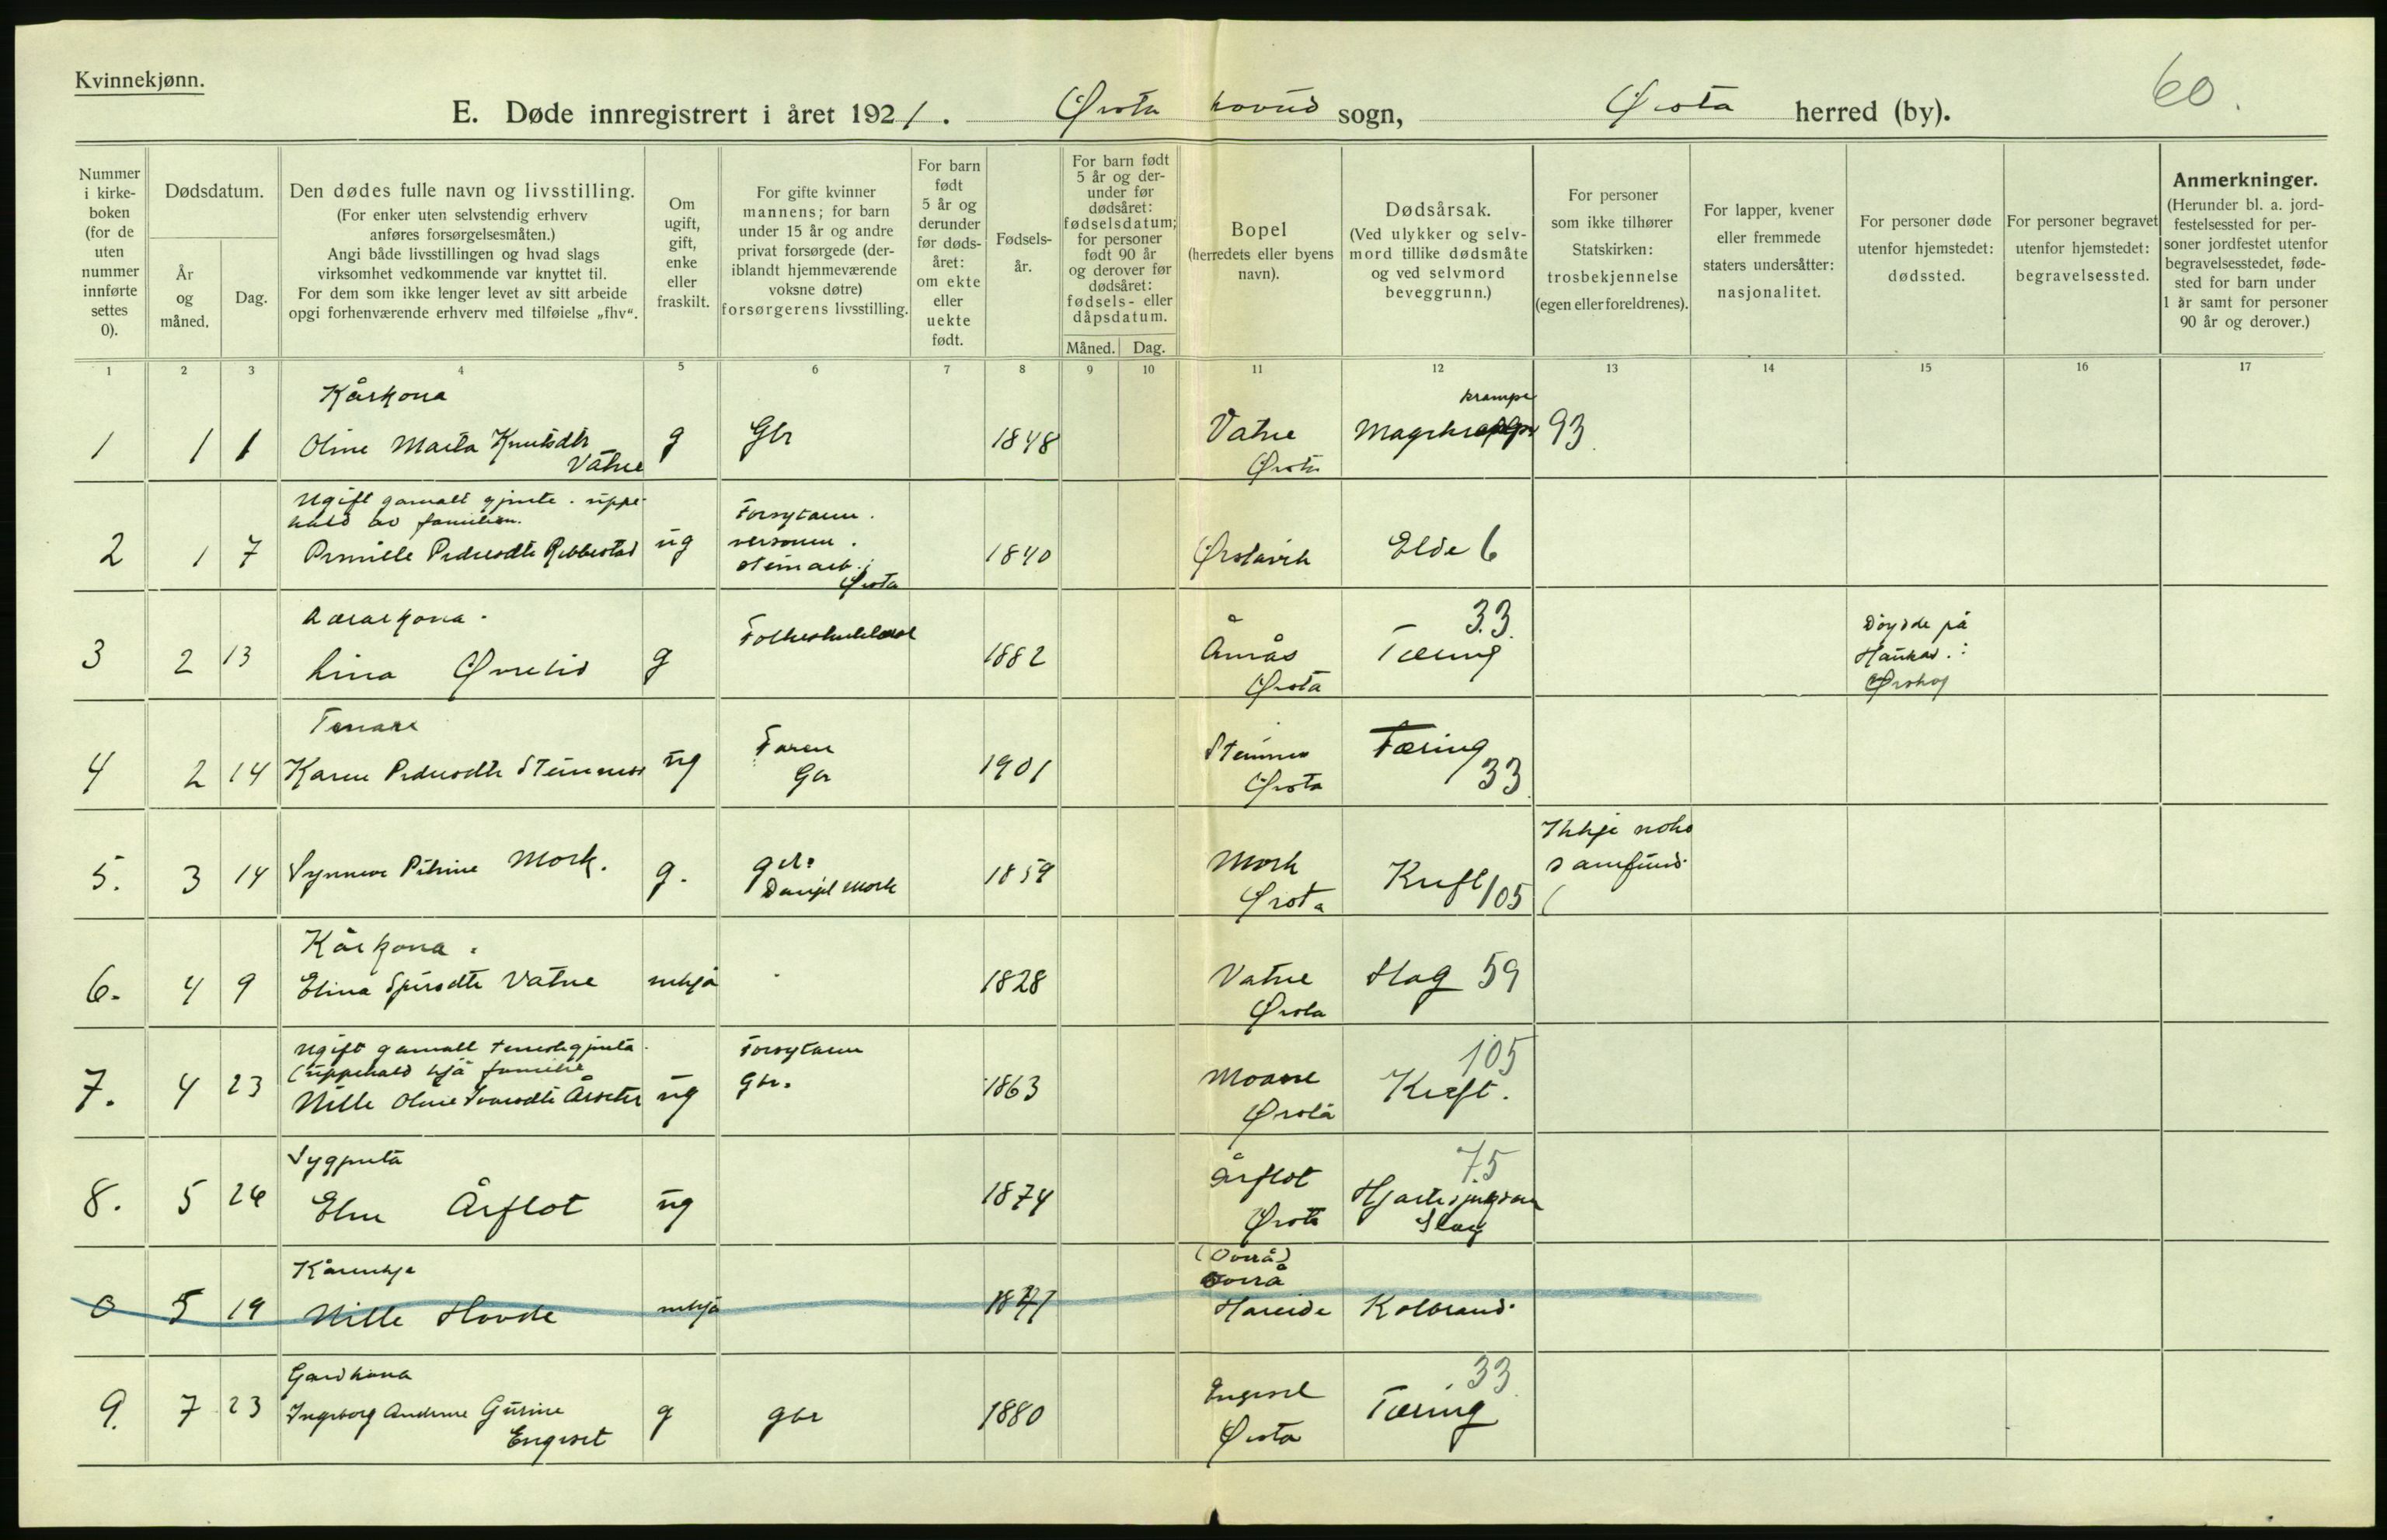 Kvinnekjønn.
60.
E. Døde innregistrert i året 1921. Ørsta hovud sogn, Ørsta herred (by).
Nummer i kirkeboken (for de uten nummer innførte settes 0).
Dødsdatum.
År og måned.
Dag.
Den dødes fulle navn og livsstilling.
(For enker uten selvstendig erhverv
anføres forsørgelsesmåten.)
Angi både livsstillingen og hvad slags
virksomhet vedkommende var knyttet til.
For dem som ikke lenger levet av sitt arbeide
opgi forhenværende erhverv med tilføielse „fhv“.
Om ugift, gift, enke eller fraskilt.
For gifte kvinner
mannens; for barn
under 15 år og andre
privat forsørgede (der-
iblandt hjemmeværende
voksne døtre)
forsørgerens livsstilling.
For barn født 5 år og derunder før døds-året: om ekte eller uekte født.
Fødsels-år.
For barn født
5 år og der-
under før
dødsåret:
fødselsdatum;
for personer
født 90 år
og derover før
dødsåret:
fødsels- eller
dåpsdatum.
Måned. Dag.
Bopel
(herredets eller byens
navn).
Dødsårsak.
(Ved ulykker og selv-
mord tillike dødsmåte
og ved selvmord
beveggrunn.)
For personer
som ikke tilhører
Statskirken:
trosbekjennelse
(egen eller foreldrenes).
For lapper, kvener
eller fremmede
staters undersåtter:
nasjonalitet.
For personer døde
utenfor hjemstedet:
dødssted.
For personer begravet
utenfor hjemstedet:
begravelsessted.
Anmerkninger.
(Herunder bl. a. jord-
festelsessted for per-
soner jordfestet utenfor
begravelsesstedet, føde-
sted for barn under
1 år samt for personer
90 år og derover.)
1 2 3 4 5 6 7 8 9 10 11 12 13 14 15 16 17
Kårkona
krampe
1 1 1 Oline Marta Knutsdtr Vatne g Gbr 1848 Vatne Ørsta 93
Ugift gamalt gjente. uppe-
hald av familien.
2 1 7 Pernille Pedersdtr Ribbestad ug 1840 Ørstavik Elde 6
Ørsta
Lærarkona.
3 2 13 Lina Øvrelid g Folkeskulelærar 1882 Åmås Ørsta Tæring 33
Døydde på
Haukås.
Ørskog
Tenare
4 2 14 Karen Pedersdtr Steinnes ug Faren Gbr 1901 Steinnes Ørsta Tæring 33
5. 3 14 Synneve Petrine Mork. g. gbr. Daniel Mork 1859 Mork Ørsta Kreft 105
Ikkje noko
samfund.
Kårkona.
6. 4 9 Elina Sjursdtr Vatne enkja 1828 Vatne Ørsta Slag 59
Ugift gamall tenestegjenta.
(uppehald hjå familie
7. 4 23 Nille Oline Årseter ug Gbr. 1863 Moane Ørsta Kreft. 105
Sygjenta
8. 5 26 Eline Årflot ug 1874 Årflot Ørsta Slag 75
Kårenkje
0 5 19 Nille Hovde enkja Hareide Kolbrand.
Gardkona
9. 7 23 Ingeborg Andrine Gurine Engeset g gbr 1880 Engeset Ørsta Tæring 33